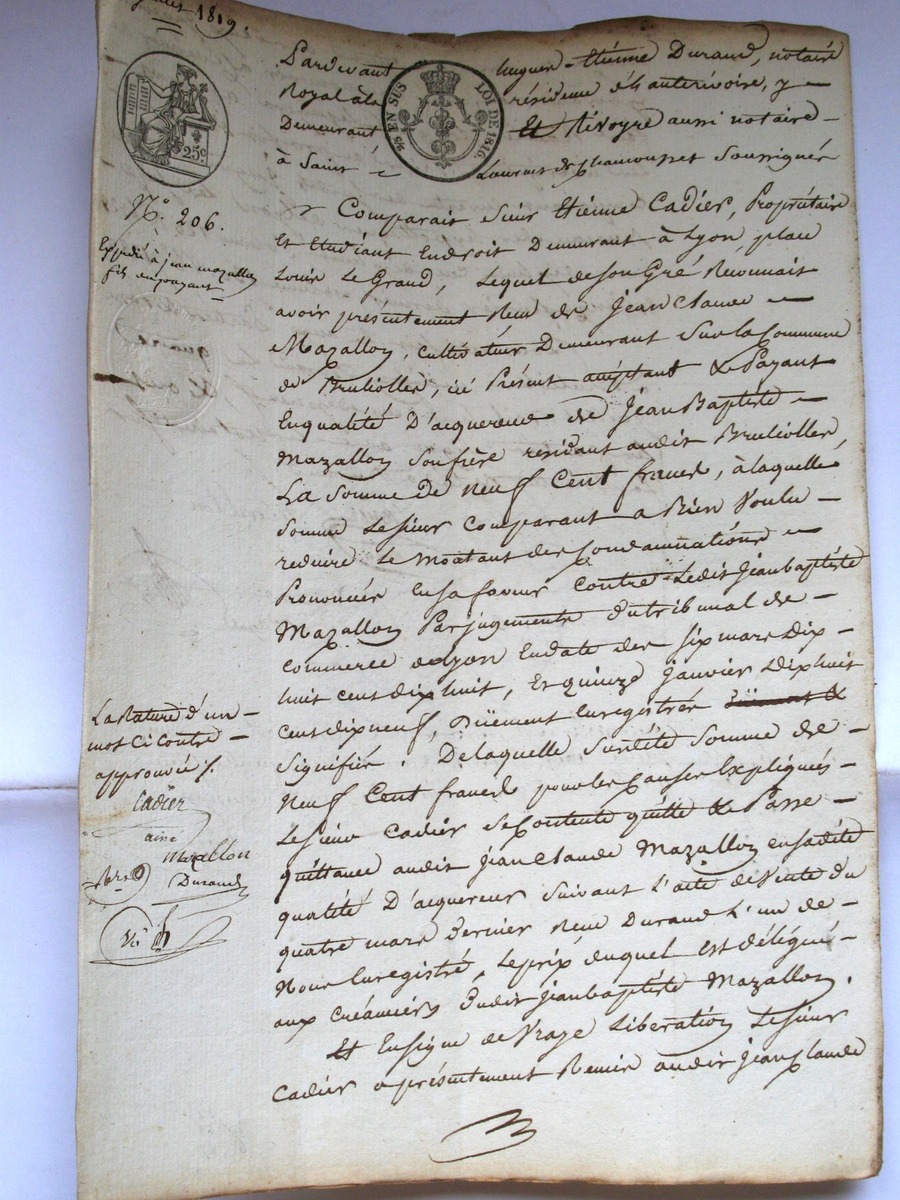 1819
25c
2/5 EN SUS LOI DE 1816.
N.° 206.
Expédié à jean mazallon
fils
Pardevant hugues-Etiénne Durand, notaire
Royal à la résidence d'hauterivoire, y
Demeurant Et Rivoyre aussi notaire
à Saint Laurent de Chamousset Soussignés
Comparait Sieur Etiénne Cadier, Propriétaire
Et Etudiant En droit Demeurant à Lyon, place
Louis Le Grand, Lequel de Son Gré Reconnait
avoir présentement Reçu de Jean Claude
Mazallon, Cultivateur Demeurant Sur la Commune
de Brulliolles, ici Présent acceptant & Payant
En qualité D'acquereur de Jean Baptiste
Mazallon Son frère résidant audit Brulliolles,
La Somme De neuf Cent francs, à laquelle
Somme Le Sieur Comparant a Bien Voulu
reduire Le Montant des Condamnations
Prononcées En sa faveur Contre Ledit Jean baptiste
Mazallon Par jugements du tribunal de
Commerce de Lyon En date des Six mars Dix
huit cent dix huit, Et quinze Janvier Dix huit
Cent dix neuf, Düement Enregistrés
Signifiés. De laquelle Susdite Somme de
Neuf Cent francs pour les Causes Expliquées
Le Sieur Cadier Se Contente quitte & Passe
quittance audit Jean Claude Mazallon En sadite
qualité D'acquereur Suivant l'acte de Vente du
quatre mars Dernier Reçu Durand L'un de
Nous Enregistré, Le prix duquel Est délégué
aux Créanciers Dudit Jean baptiste Mazallon.
Et En signe de Vraye Libération Le Sieur
Cadier a présentement Remis audit Jean Claude
La Rature d'un
mot Ci Contre
approuvée /.
Cadier
ainé
Mazallon
Durand